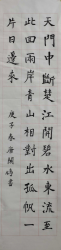 天門中斷楚江開碧水東流至
此回兩岸青山相對出孤帆一
片日邊來
庚子春唐書